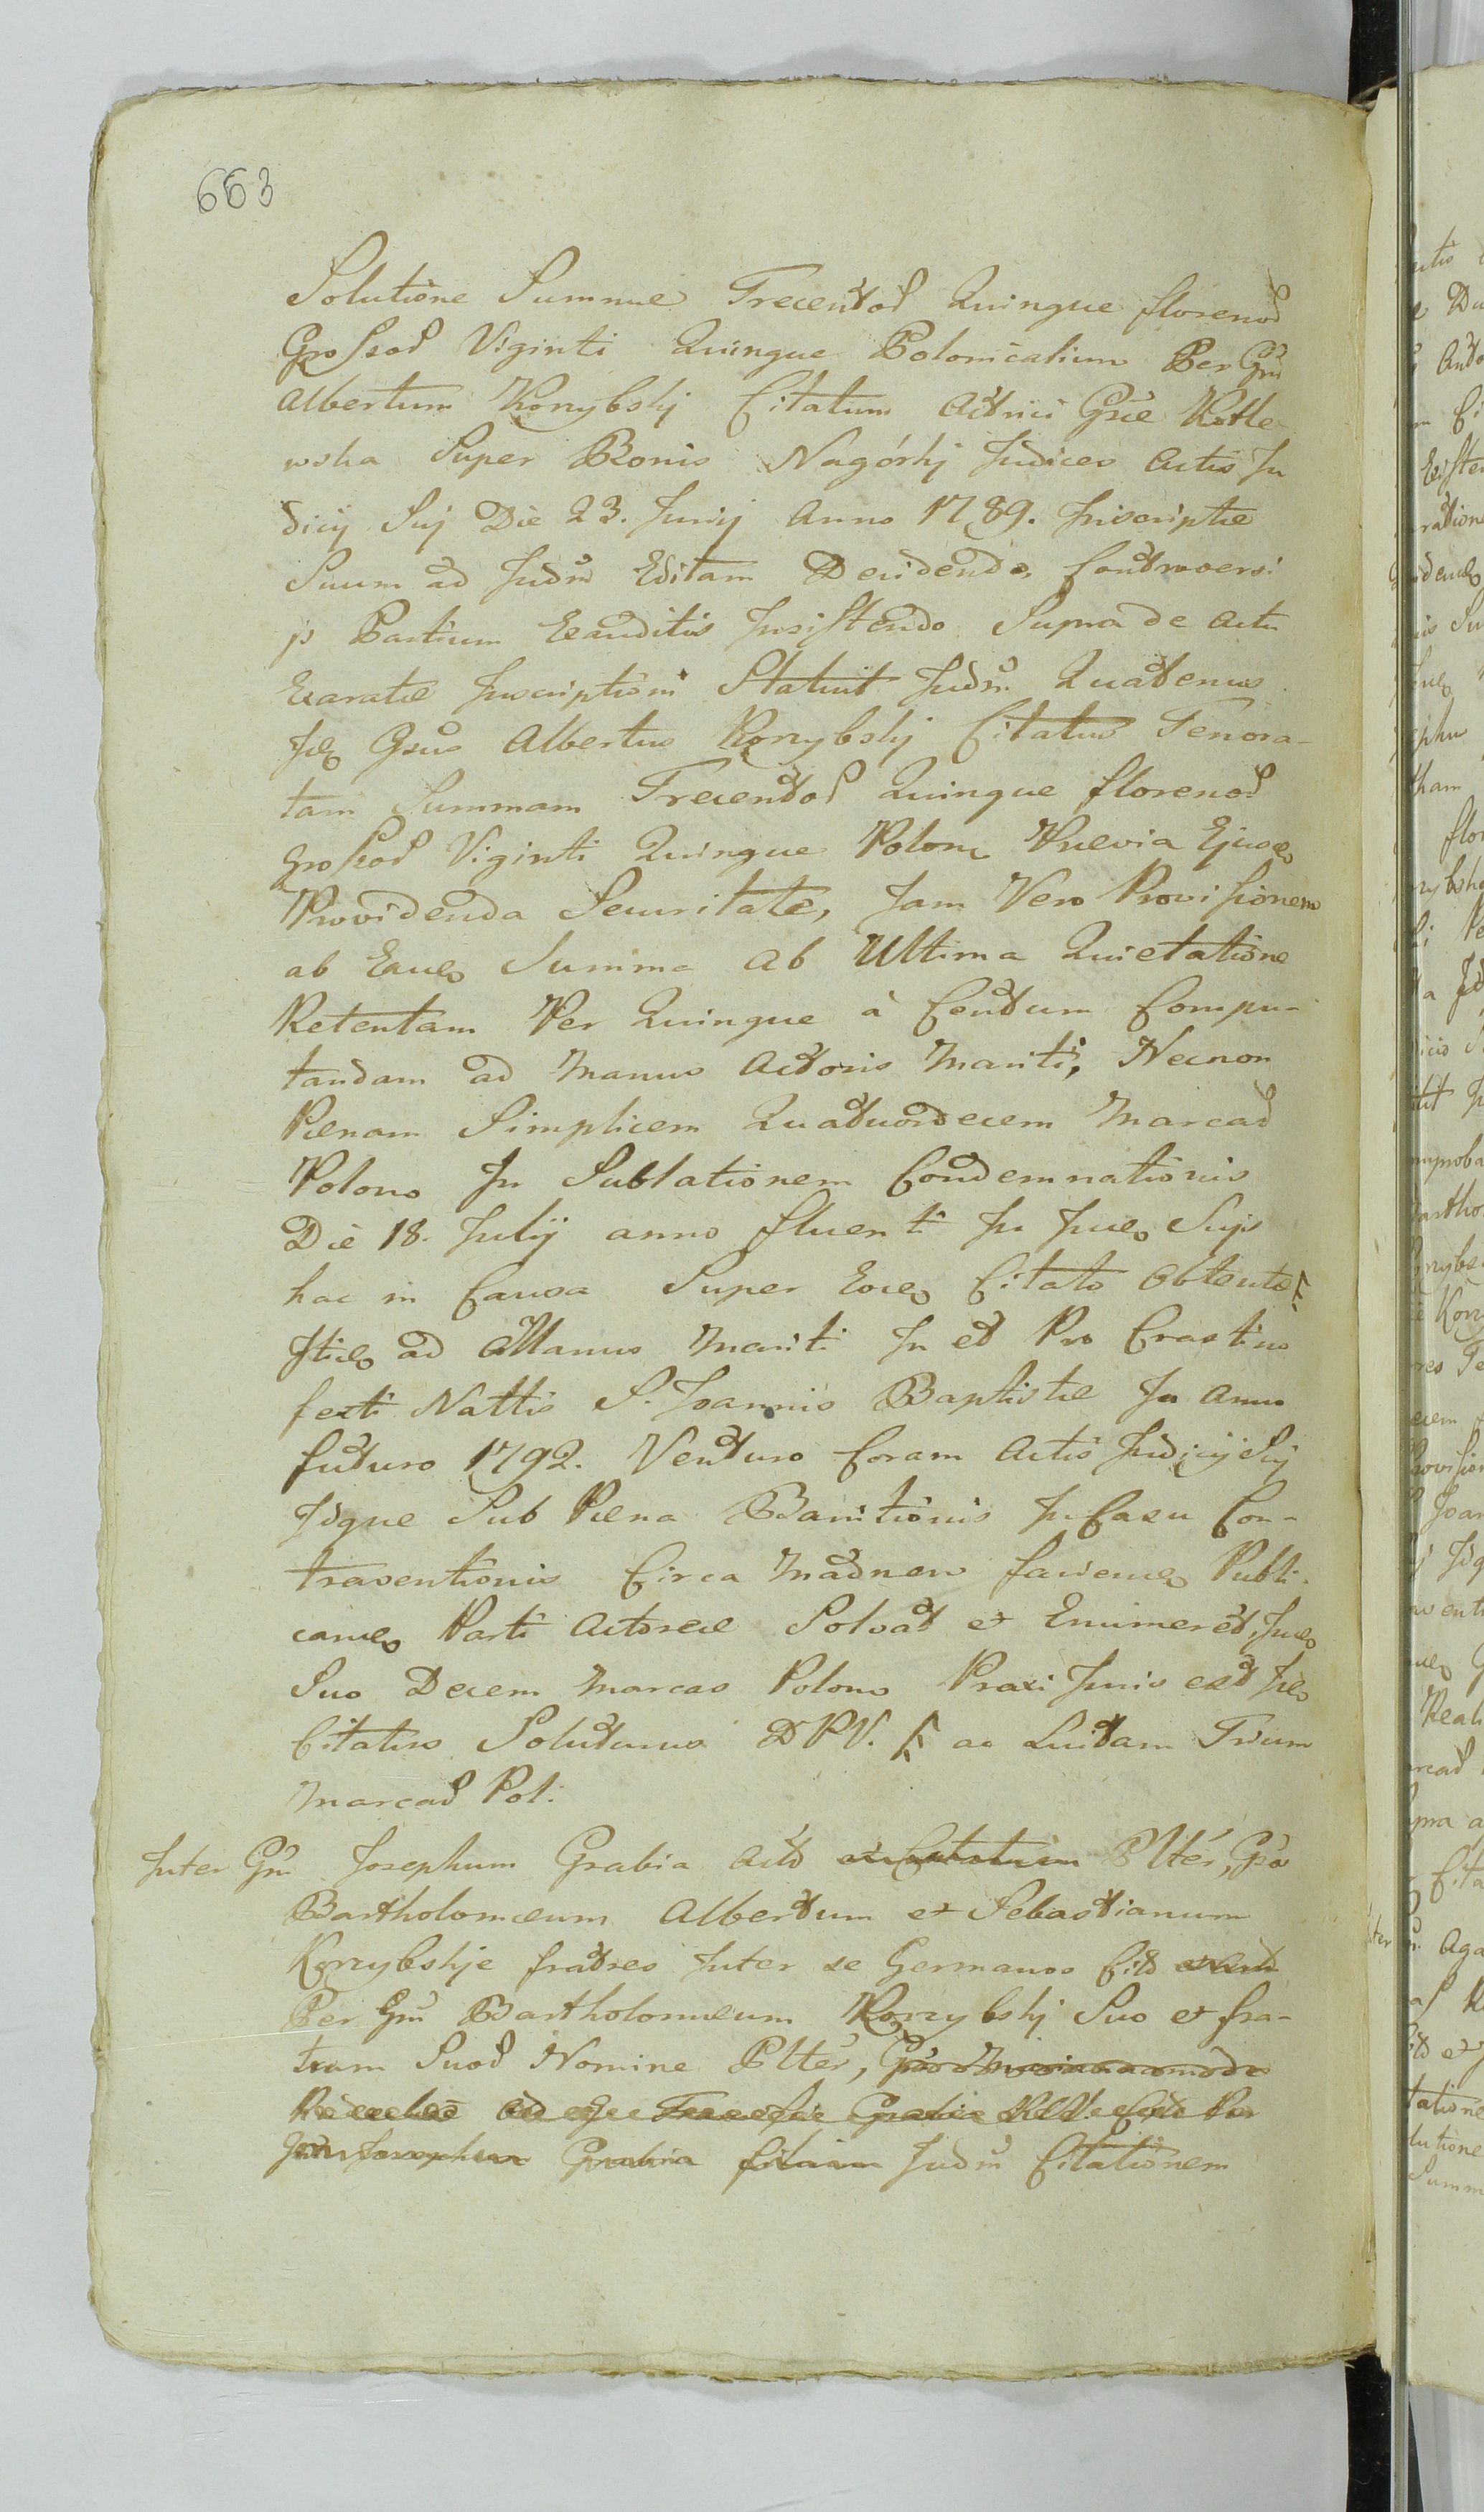 663
Solutione Summae Trecentor Quinque florenor
Grossor Viginti Quinque Polonicalium Per Grm
Albertum Korzybskj Citatum Actrici Grae Kotle
wska Super Bonis Nagórkj Judices Actis Ju
dicij Sui Die 23. Junij Anno 1789. Inscriptae
Suum ad Judm Editam Decidendo, Controversi
js Partium Exauditis Insistendo Supra de Actu
Exaratae Inscriptioni Statuit Judm Quatenus
Gsus Albertus Korzybskj Citatus Tenora-
tam Summam Trecentor Quinque florenor
Grossor Viginti Quinque Polon Praevia Ejus
Providenda Securitate, Jam Vero Provisionem
ab Summa Ab Ultima Quietatione
Retentam Per Quinque à Centum Compu-
tandam ad Manus Actoris Mariti, Necnon
Paenam Simplicem Quatuordecem Marcar
Polono In Sublationem Condemnationis
Die 18. Julij anno fluenti In Sujs
hac in Causa Super Citato Obtente
ad Manus Mariti In et Pro Crastino
festi Nattis S. Joannis Baptistae In Anno
futuro 1792. Venturo Coram Actis Judicij Sij
Idque Sub Paena Banitionis In Casu Con-
traventionis Circa Madnem faciem Publi-
cam Parti Actoreae Solvat et Enumeret,
Suo Decem Marcas Polono Praxi Junis
Citatus Soluturus DPV. ac Luitam Trium
Marcar Pol:
Inter Grm Josephum Grabia Act Plter, Gros
Bartholomaeum Albertum et Sebastianum
Korzybskje fratres Inter se Germanos Cit
Per Grm Bartholomaeum Korzybskj Suo et fra-
trum Suor Nomine Plter,
Josephum Grabia Judm Citationem